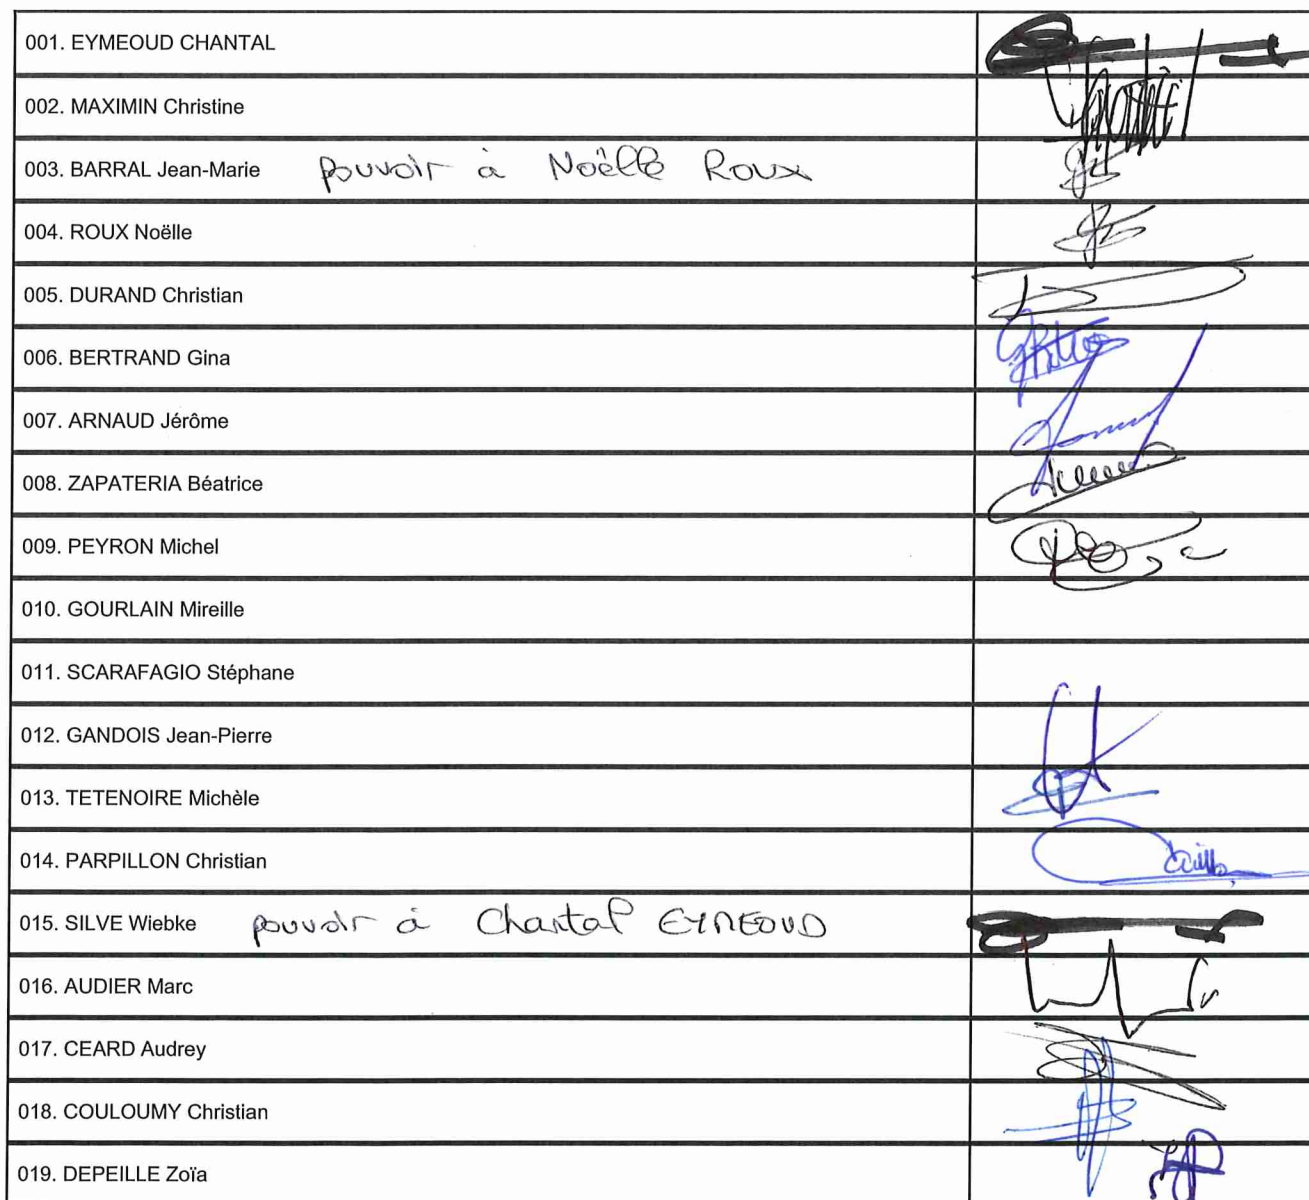 001. EYMEOUD CHANTAL
002. MAXIMIN Christine
003. BARRAL Jean-Marie pouvoir à Noëlle Roux
004. ROUX Noëlle
005. DURAND Christian
006. BERTRAND Gina
007. ARNAUD Jérôme
008. ZAPATERIA Béatrice
009. PEYRON Michel
010. GOURLAIN Mireille
011. SCARAFAGIO Stéphane
012. GANDOIS Jean-Pierre
013. TETENOIRE Michèle
014. PARPILLON Christian
015. SILVE Wiebke pouvoir à Chantal EYMEOUD
016. AUDIER Marc
017. CEARD Audrey
018. COULOUMY Christian
019. DEPEILLE Zoïa